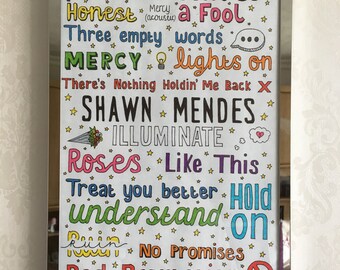 Honest Mercy (acoustic) a Fool
Three empty words
MERCY lights on
There's Nothing Holdin' Me Back
SHAWN MENDES
ILLUMINATE
Roses Like This
Treat you better
understand Hold on
Ruin
ruin No Promises